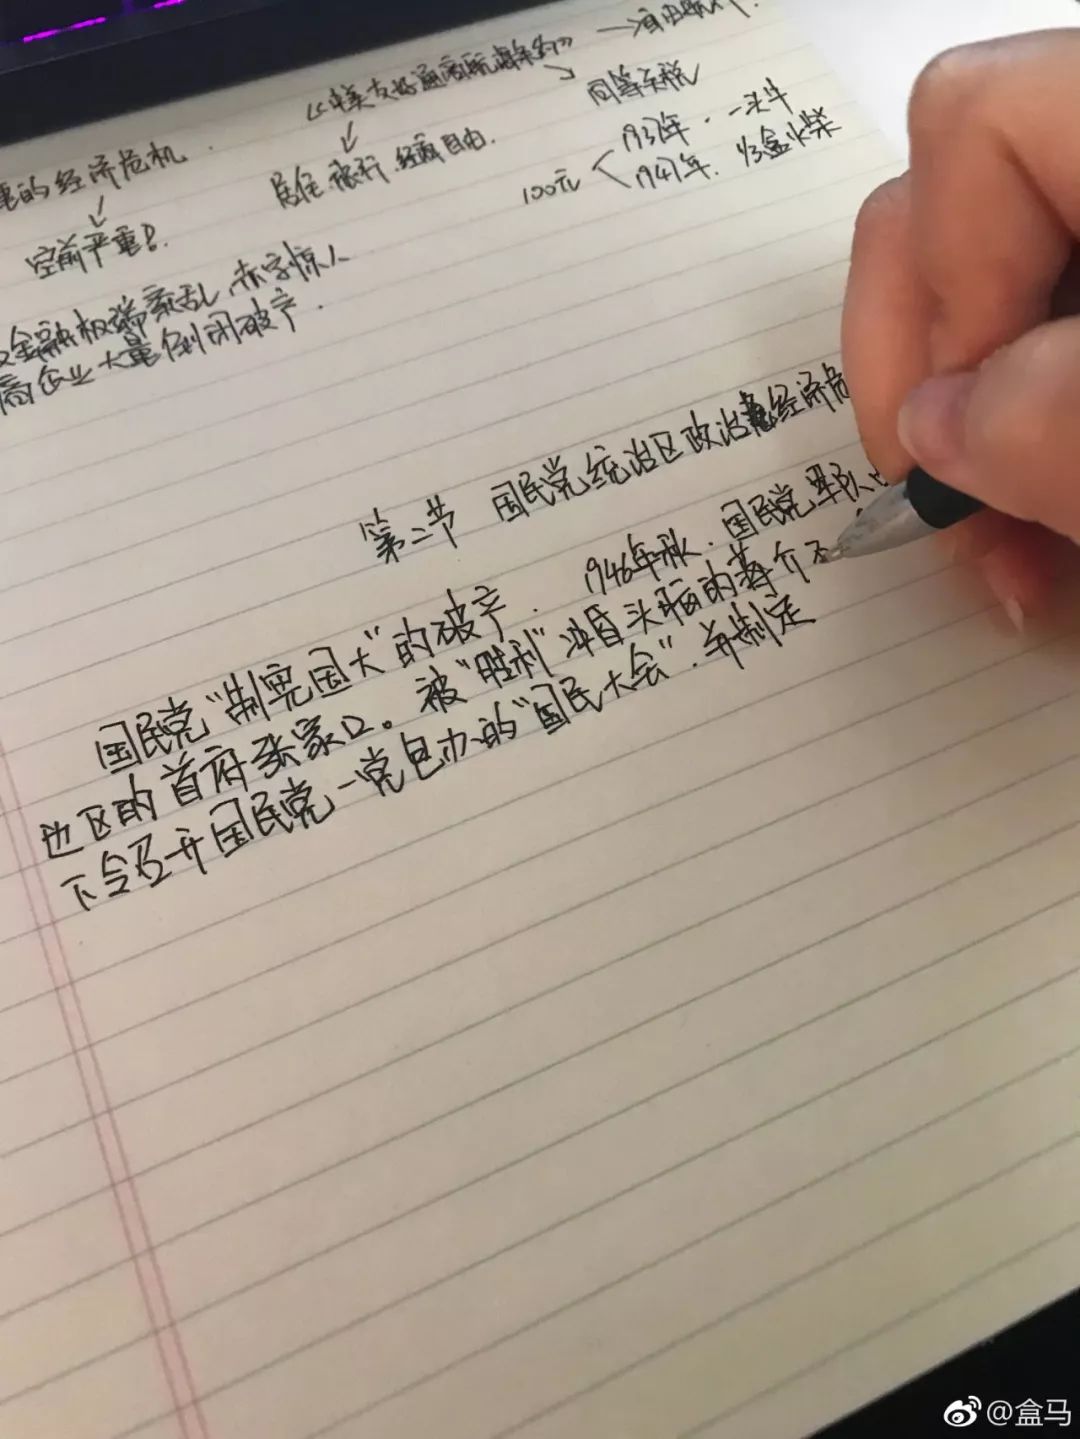 《中美友好通商航海条约》 →自由
同等关税
居住、旅行、经商自由.
100元 1937年·一头牛
1947年. 1/3盒火柴
的经济危机
空前严重!
金融极端紊乱,赤字惊人
商企业大量倒闭破产.
第二节 国民党统治区政治经济危
国民党“制宪国大”的破产. 1946年秋.国民党军队
边区的首府张家口。被“胜利”冲昏头脑的蒋介
下令召开国民党一党包办的“国民大会”.并制定
@盒马